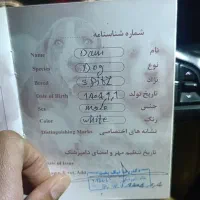 شماره شناسنامه
Name Dani نام
Species Dog نوع
Breed spitz نژاد
Date of Birth 1401,9,1 تاریخ تولد
Sex male جنس
Color white رنگ
Distinguishing Marks نشانه های اختصاصی
تاریخ تنظیم مهر و امضای دامپزشک
Date of Issue